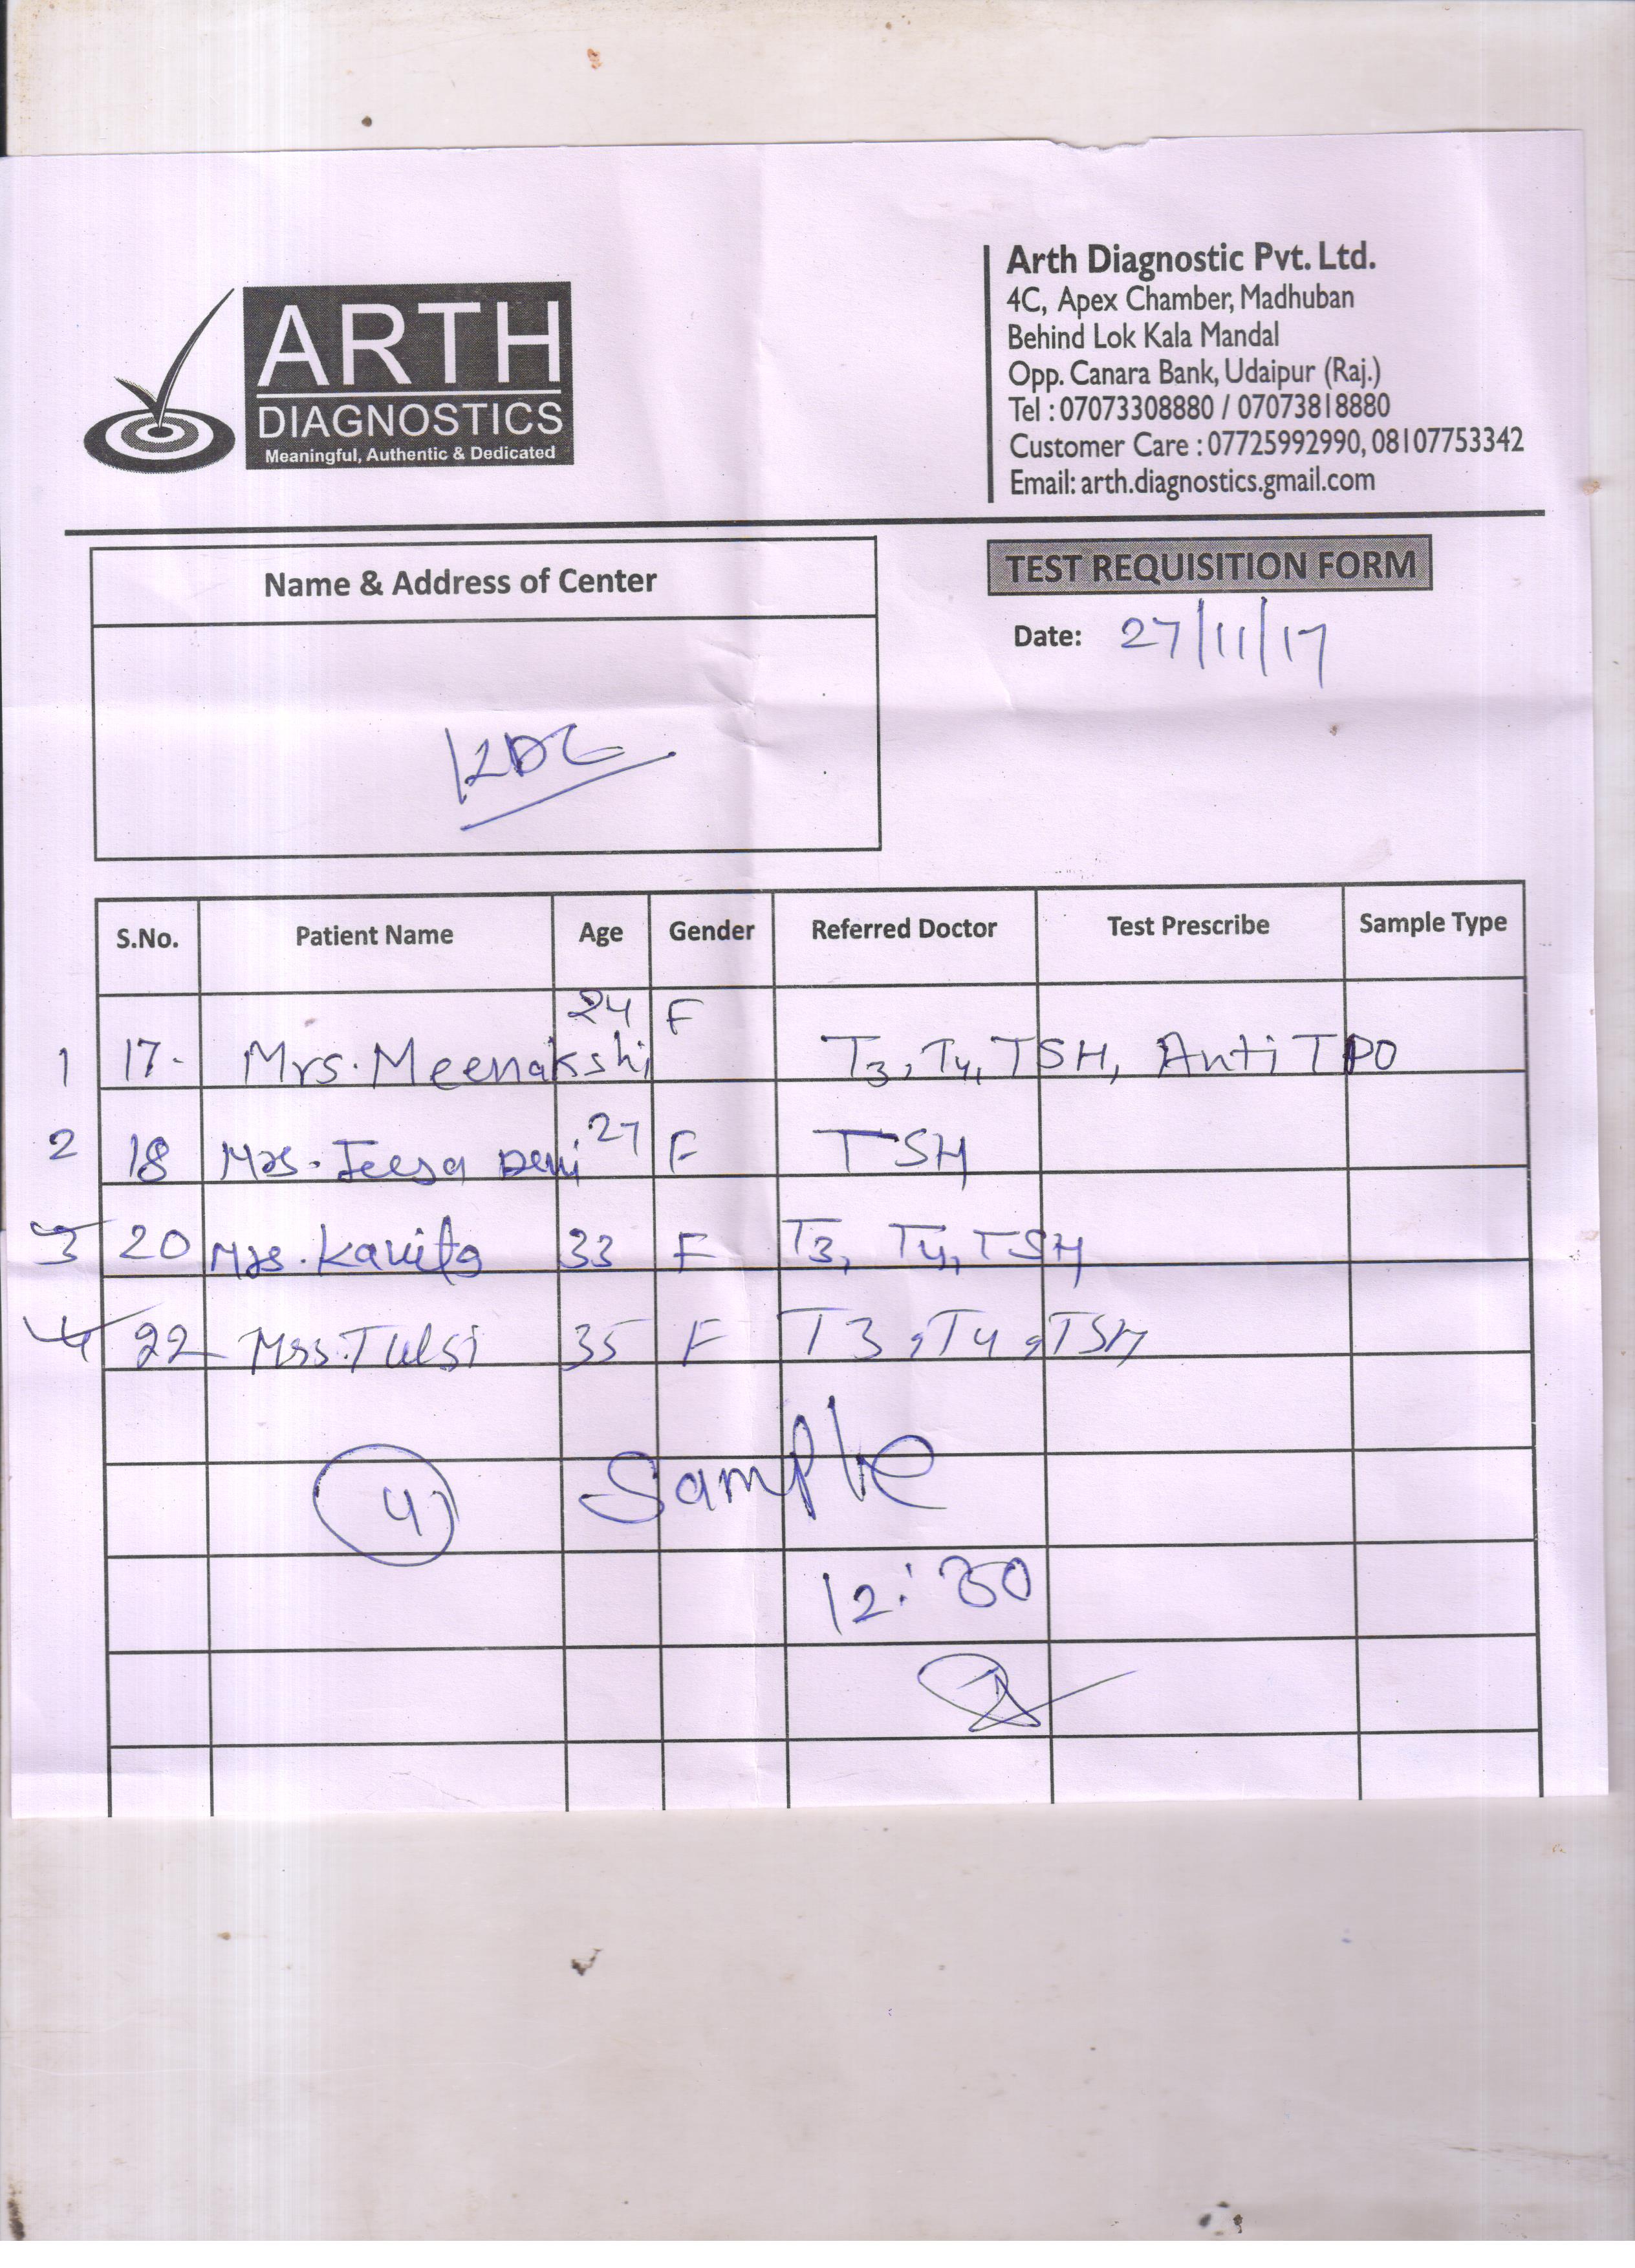 ARTH
DIAGNOSTICS
Meaningful, Authentic & Dedicated
Arth Diagnostic Pvt. Ltd.
4C, Apex Chamber, Madhuban
Behind Lok Kala Mandal
Opp. Canara Bank, Udaipur (Raj.)
Tel : 07073308880 / 07073818880
Customer Care : 07725992990, 08107753342
Email: arth.diagnostics.gmail.com
Name & Address of Center
KDC
TEST REQUISITION FORM
Date: 27/11/17
S.No. Patient Name Age Gender Referred Doctor Test Prescribe Sample Type
1 17- Mrs. Meenakshi 24 F T3, T4, TSH, Anti TPO
2 18 Mrs. Jeesa Devi 27 F TSH
3 20 Mrs. Kavita 33 F T3, T4, TSH
4 22 Mrs. Tulsi 35 F T3, T4, TSH
4 Sample
12:30